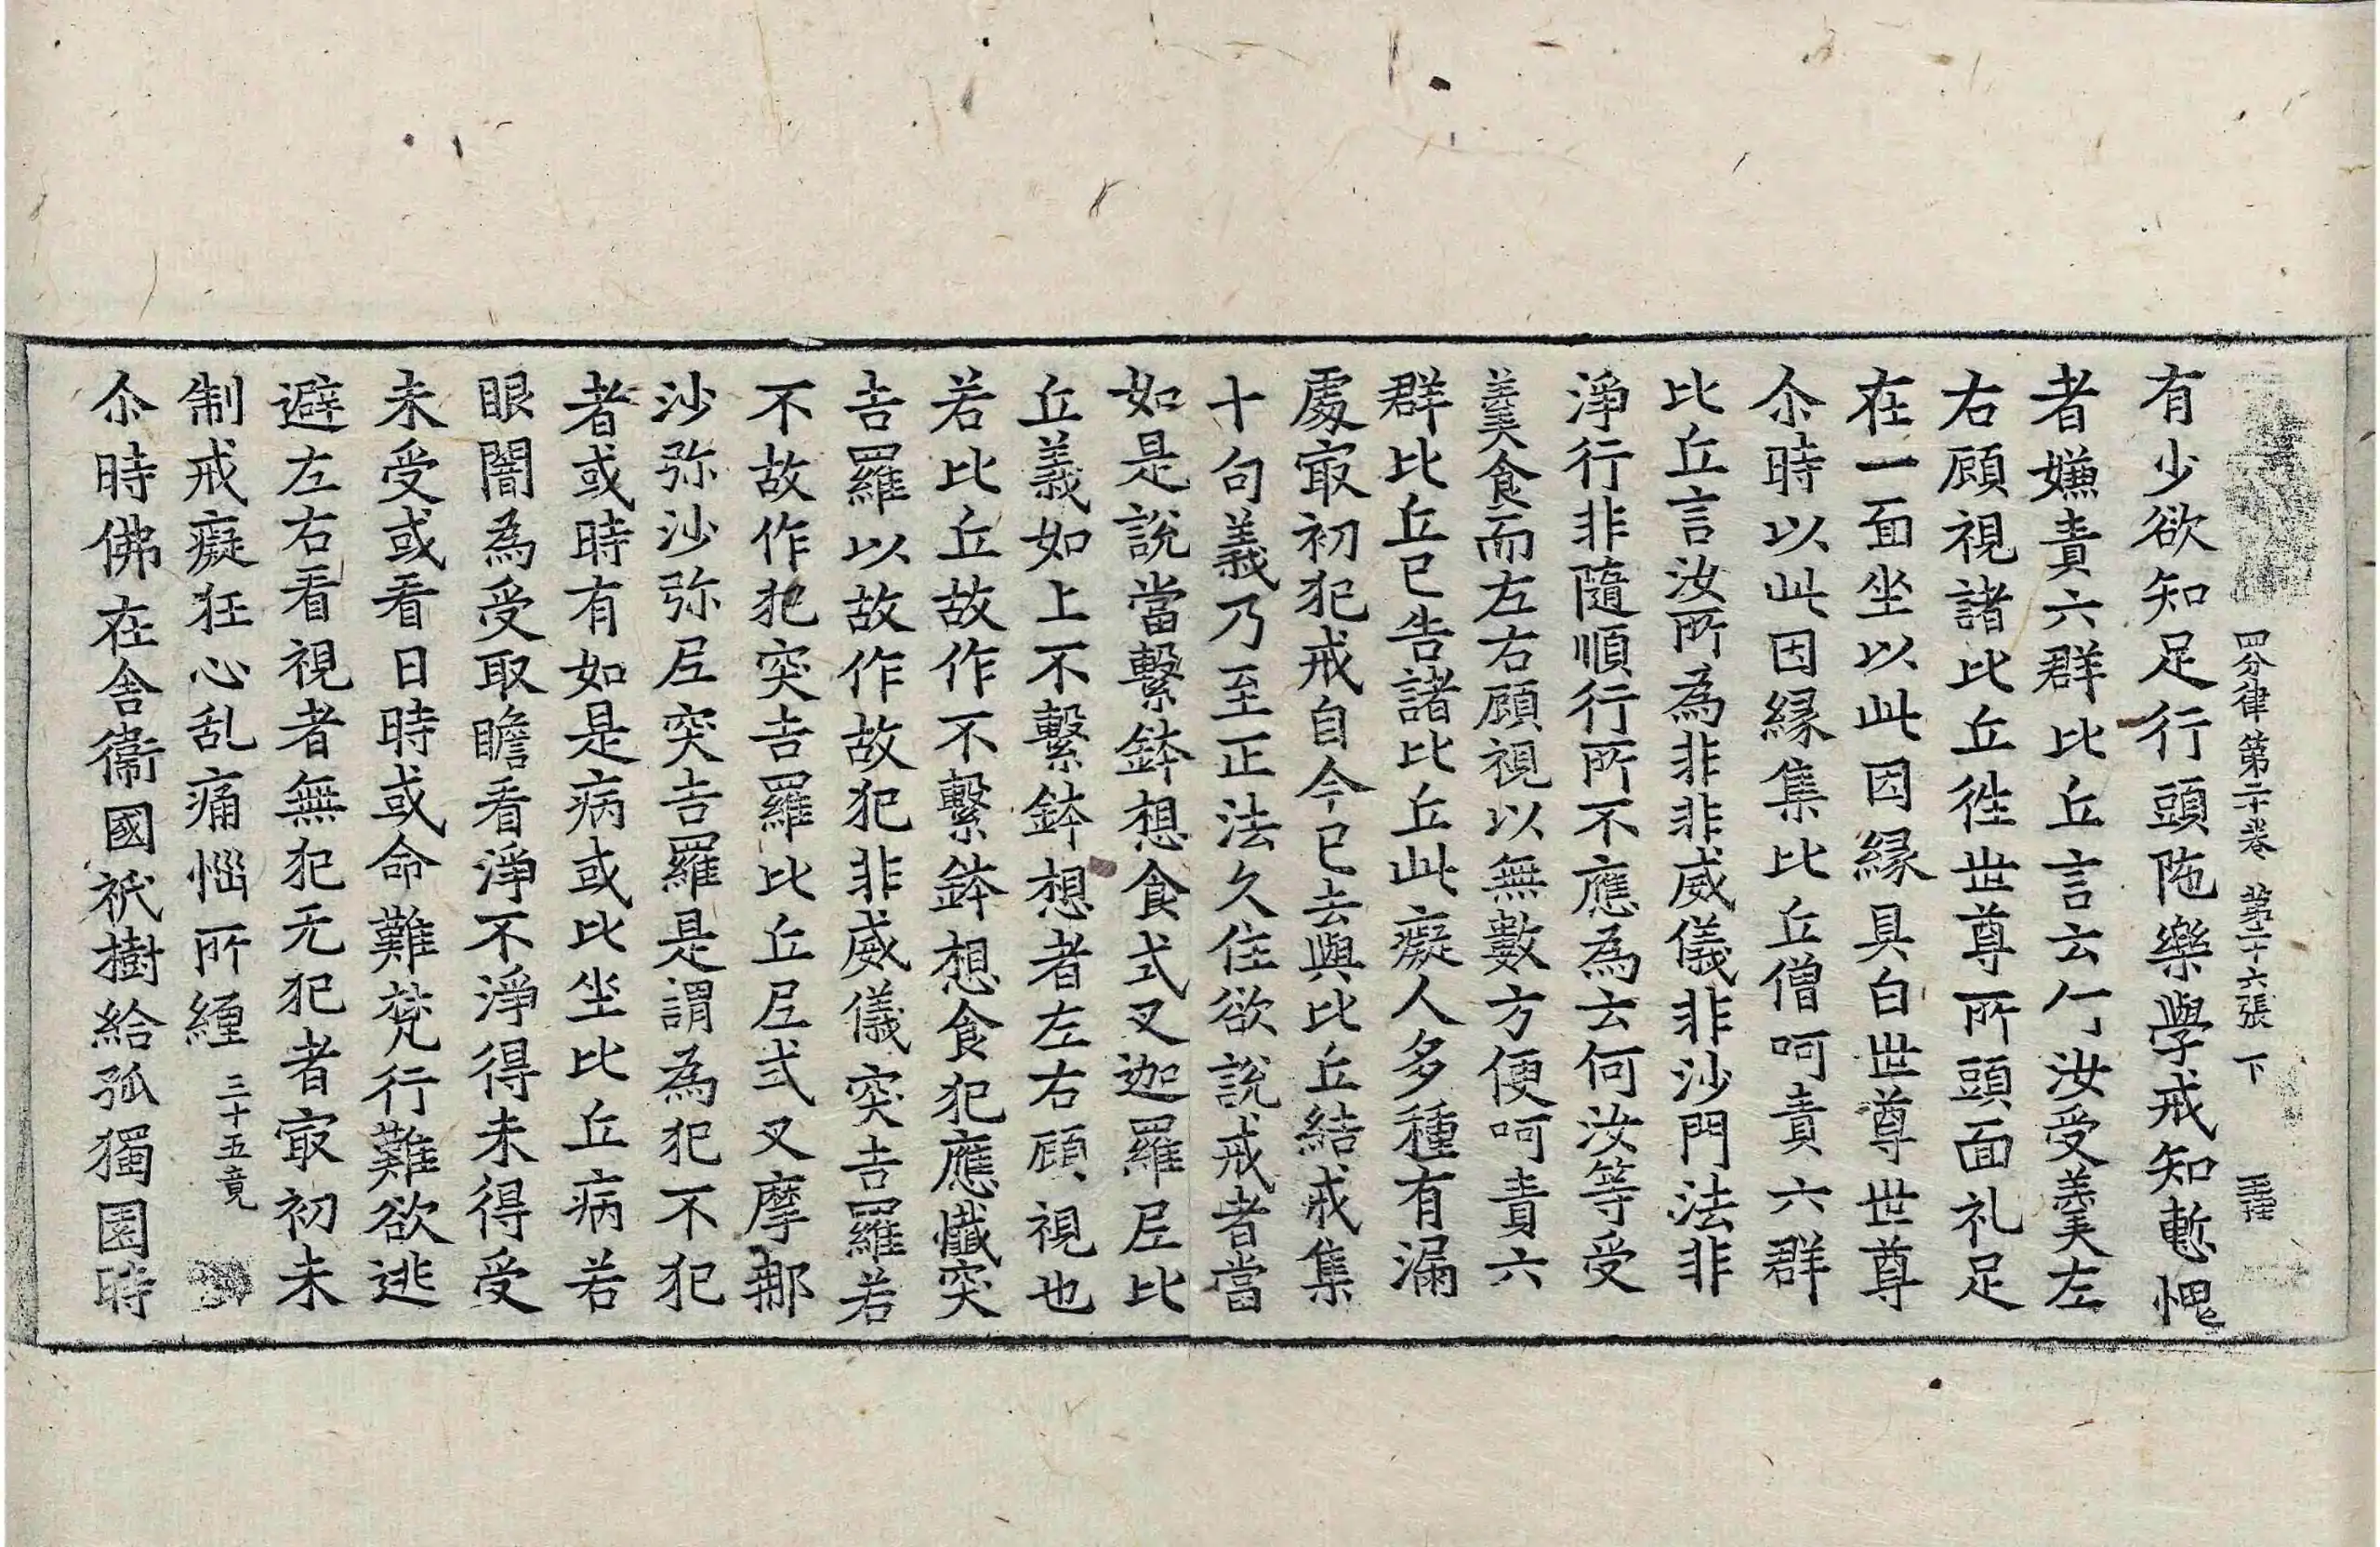 四分律第二十卷 第二十六張 下
有少欲知足行頭陁樂學戒知慙愧
者嫌責六群比丘言云何汝受羹左
右顧視諸比丘徃世尊所頭面礼足
在一面坐以此因縁具白世尊世尊
尒時以此因縁集比丘僧呵責六群
比丘言汝所為非非威儀非沙門法非
淨行非隨順行所不應為云何汝等受
羹食而左右顧視以無數方便呵責六
群比丘已告諸比丘此癡人多種有漏
處㝡初犯戒自今已去與比丘結戒集
十句義乃至正法久住欲說戒者當
如是說當繫鉢想食式叉迦羅尼比
丘義如上不繫鉢想者左右顧視也
若比丘故作不繫鉢想食犯應懺突
吉羅以故作故犯非威儀突吉羅若
不故作犯突吉羅比丘尼式叉摩那
沙弥沙弥尼突吉羅是謂為犯不犯
者或時有如是病或比坐比丘病若
眼闇為受取瞻看淨不淨得未得受
未受或看日時或命難梵行難欲逃
避左右看視者無犯无犯者㝡初未
制戒癡狂心乱痛惱所纏 三十五竟
尒時佛在舍衞國祇樹給孤獨園時